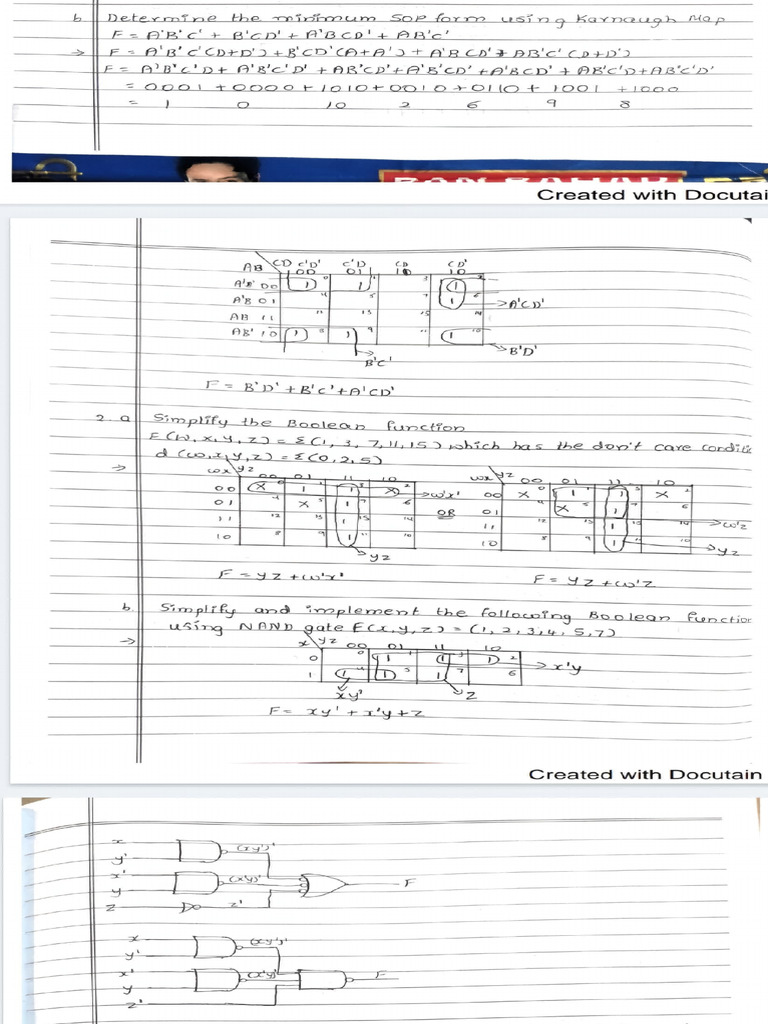 b. Determine the minimum SOP form using Karnaugh Map
F = A'B'C' + B'CD' + A'BCD' + AB'C'
→ F = A'B'C'(D+D') + B'CD'(A+A') + A'BCD' + AB'C'(D+D')
F = A'B'C'D + A'B'C'D' + AB'CD' + A'B'CD' + A'BCD' + AB'C'D + AB'C'D'
= 0001 + 0000 + 1010 + 0010 + 0110 + 1001 + 1000
= 1 0 10 2 6 9 8
Created with Docutai
AB CD C'D' C'D CD CD'
00 01 10
A'B' 00 1 0 1 1 3 1 2
A'B 01 4 5 7 1 6 →A'CD'
AB 11 12 13 15 14
AB' 10 1 8 1 9 11 1 10
→B'D'
B'C'
F = B'D' + B'C' + A'CD'
2. a Simplify the Boolean function
F(w,x,y,z) = Σ(1, 3, 7, 11, 15) which has the don't care conditi
d (w,x,y,z) = Σ(0, 2, 5)
→ wx yz 00 01 11 10 wx yz 00 01 11 10
00 X 0 1 1 1 3 X 2 →w'x' 00 X 0 1 1 1 3 X 2
01 4 X 5 1 7 6 OR 01 4 X 5 1 7 6
11 12 13 1 15 14 11 12 13 1 15 14 →w'z
10 8 9 1 11 10 10 8 9 1 11 10 →yz
→yz
F = yz + w'x' F = yz + w'z
b. Simplify and implement the following Boolean function
using NAND gate F(x,y,z) = (1, 2, 3, 4, 5, 7)
→ x yz 00 01 11 10
0 0 1 1 1 3 1 2 →x'y
1 1 4 1 5 1 7 6
xy' z
F = xy' + x'y + z
Created with Docutain
x
y' (xy')'
x' (x'y)' F
y
z z'
x (xy')'
y'
x' (x'y)' F
y
z'